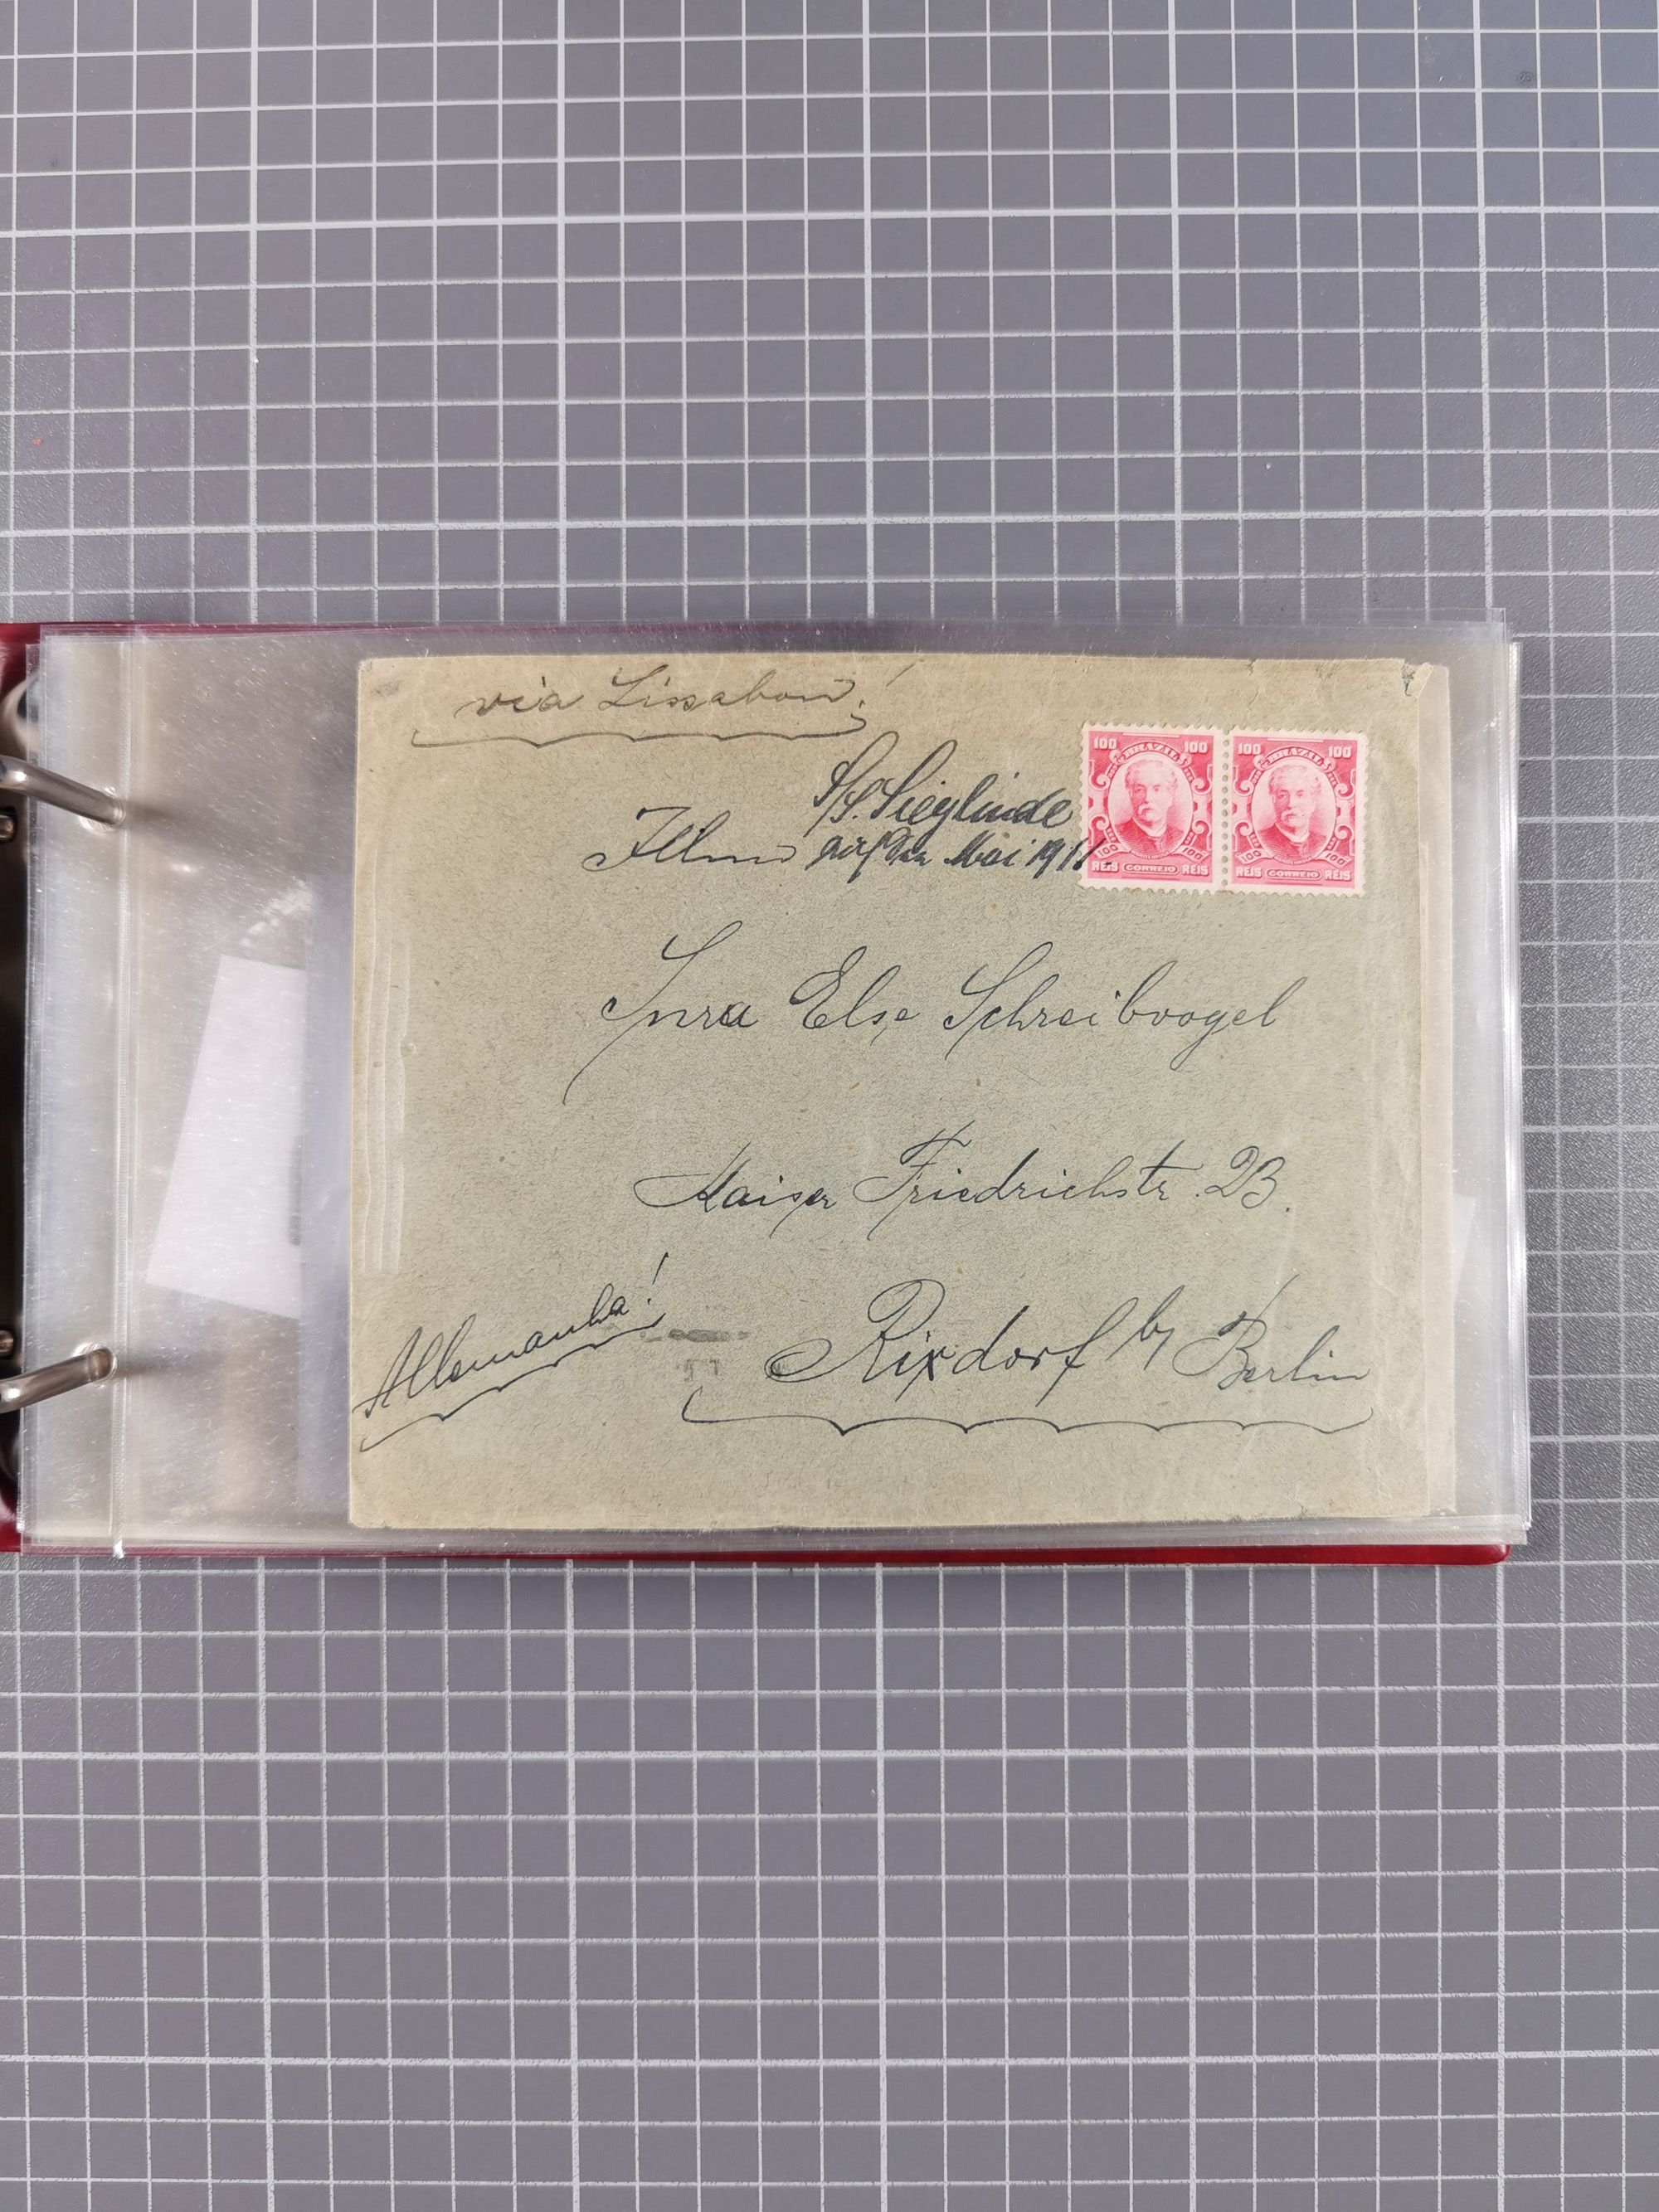 via Lissabon!
S/S. Sieglinde
Illma Mai 1911.
100 BRAZIL 100
100 100
REIS CORREIO REIS
100 BRAZIL 100
100 100
REIS CORREIO REIS
Snra Else Schreibvogel
Kaiser Friedrichstr. 23.
Allemanha!
Rixdorf b/ Berlin